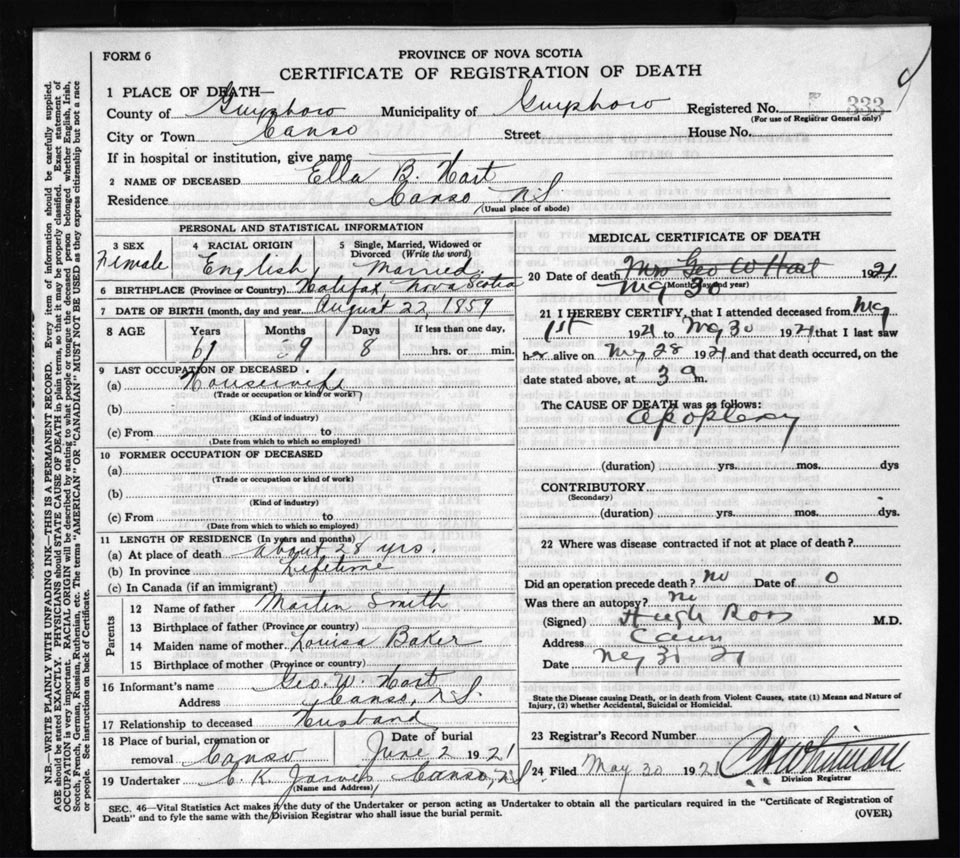 FORM 6
PROVINCE OF NOVA SCOTIA
CERTIFICATE OF REGISTRATION OF DEATH
1 PLACE OF DEATH—
County of Guysboro Municipality of Guysboro Registered No. 333
(For use of Registrar General only)
City or Town Canso Street House No.
If in hospital or institution, give name
2 NAME OF DECEASED Ella B. Hart
Residence Canso N.S.
(Usual place of abode)
PERSONAL AND STATISTICAL INFORMATION
3 SEX Female
4 RACIAL ORIGIN English
5 Single, Married, Widowed or Divorced (Write the word) Married
6 BIRTHPLACE (Province or Country) Halifax, Nova Scotia
7 DATE OF BIRTH (month, day and year) August 22, 1859
8 AGE Years Months Days If less than one day,
61 9 8 hrs. or min.
9 LAST OCCUPATION OF DECEASED
(a) Housewife
(Trade or occupation or kind of work)
(b)
(Kind of industry)
(c) From to
(Date from which to which so employed)
10 FORMER OCCUPATION OF DECEASED
(a)
(Trade or occupation or kind of work)
(b)
(Kind of industry)
(c) From to
(Date from which to which so employed)
11 LENGTH OF RESIDENCE (In years and months)
(a) At place of death about 28 yrs.
(b) In province Lifetime
(c) In Canada (if an immigrant)
Parents
12 Name of father Martin Smith
13 Birthplace of father (Province or country)
14 Maiden name of mother Louisa Baker
15 Birthplace of mother (Province or country)
16 Informant's name Geo. W. Hart
Address Canso, N.S.
17 Relationship to deceased Husband
18 Place of burial, cremation or removal Canso Date of burial June 2 1921
19 Undertaker C. K. Jarvis Canso, N.S.
(Name and Address)
MEDICAL CERTIFICATE OF DEATH
20 Date of death Mrs Geo W Hart 1921
My 30
(Month, day and year)
21 I HEREBY CERTIFY, that I attended deceased from My
1st 1921 to My 30 1921 that I last saw
her alive on My 28 1921 and that death occurred, on the
date stated above, at 3 a m.
The CAUSE OF DEATH was as follows:
Apoplexy
(duration) yrs. mos. dys
CONTRIBUTORY
(Secondary)
(duration) yrs. mos. dys.
22 Where was disease contracted if not at place of death?
Did an operation precede death? no Date of 0
Was there an autopsy? no
(Signed) Hugh Ross M.D.
Address
Date My 30 21
State the Disease causing Death, or in death from Violent Causes, state (1) Means and Nature of
Injury, (2) whether Accidental, Suicidal or Homicidal.
23 Registrar's Record Number
24 Filed May 30 1921
Division Registrar
SEC. 46—Vital Statistics Act makes it the duty of the Undertaker or person acting as Undertaker to obtain all the particulars required in the "Certificate of Registration of
Death" and to fyle the same with the Division Registrar who shall issue the burial permit.
(OVER)
N.B.—WRITE PLAINLY WITH UNFADING INK—THIS IS A PERMANENT RECORD. Every item of information should be carefully supplied.
AGE should be stated EXACTLY. PHYSICIANS should STATE CAUSE OF DEATH in plain terms, so that it may be properly classified. Exact statement of
OCCUPATION is very important. RACIAL ORIGIN will be described by stating to what people or tongue the deceased person belonged whether English, Irish,
Scotch, French, German, Russian, Ruthenian, etc. The terms "AMERICAN" OR "CANADIAN" MUST NOT BE USED as they express citizenship but not a race
or people. See instructions on back of Certificate.